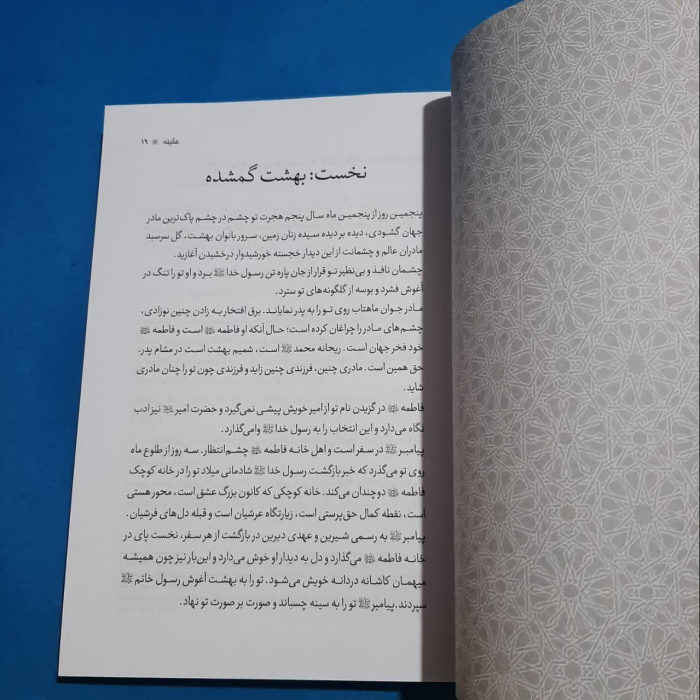 عقیله ۱۹
نخست: بهشت گمشده
پنجمین روز از پنجمین ماه سال پنجم هجرت تو چشم در چشم پاک‌ترین مادر
جهان گشودی، دیده بر دیده سیده زنان زمین، سرور بانوان بهشت، گل سرسبد
مادران عالم و چشمانت از این دیدار خجسته خورشیدوار درخشیدن آغازید.
چشمان نافذ و بی‌نظیر تو قرار از جان پاره تن رسول خدا ﷺ برد و او تو را تنگ در
آغوش فشرد و بوسه از گلگونه‌های تو سترد.
مادر جوان ماهتاب روی تو را به پدر نمایاند. برق افتخار به زادن چنین نوزادی،
چشم‌های مادر را چراغان کرده است؛ حال آنکه او فاطمه است و فاطمه
خود فخر جهان است. ریحانه محمد ﷺ است، شمیم بهشت است در مشام پدر.
حق همین است. مادری چنین، فرزندی چنین زاید و فرزندی چون تو را چنان مادری
شاید.
فاطمه در گزیدن نام تو از امیر خویش پیشی نمی‌گیرد و حضرت امیر نیز ادب
نگاه می‌دارد و این انتخاب را به رسول خدا ﷺ وامی‌گذارد.
پیامبر ﷺ در سفر است و اهل خانه فاطمه چشم‌انتظار. سه روز از طلوع ماه
روی تو می‌گذرد که خبر بازگشت رسول خدا ﷺ شادمانی میلاد تو را در خانه کوچک
فاطمه دوچندان می‌کند. خانه کوچکی که کانون بزرگ عشق است، محور هستی
است، نقطه کمال حق‌پرستی است، زیارتگاه عرشیان است و قبله دل‌های فرشیان.
پیامبر ﷺ به رسمی شیرین و عهدی دیرین در بازگشت از هر سفر، نخست پای در
خانه فاطمه می‌گذارد و دل به دیدار او خوش می‌دارد و این‌بار نیز چون همیشه
میهمان کاشانه دردانه خویش می‌شود. تو را به بهشت آغوش رسول خاتم ﷺ
سپردند. پیامبر ﷺ تو را به سینه چسباند و صورت بر صورت تو نهاد.